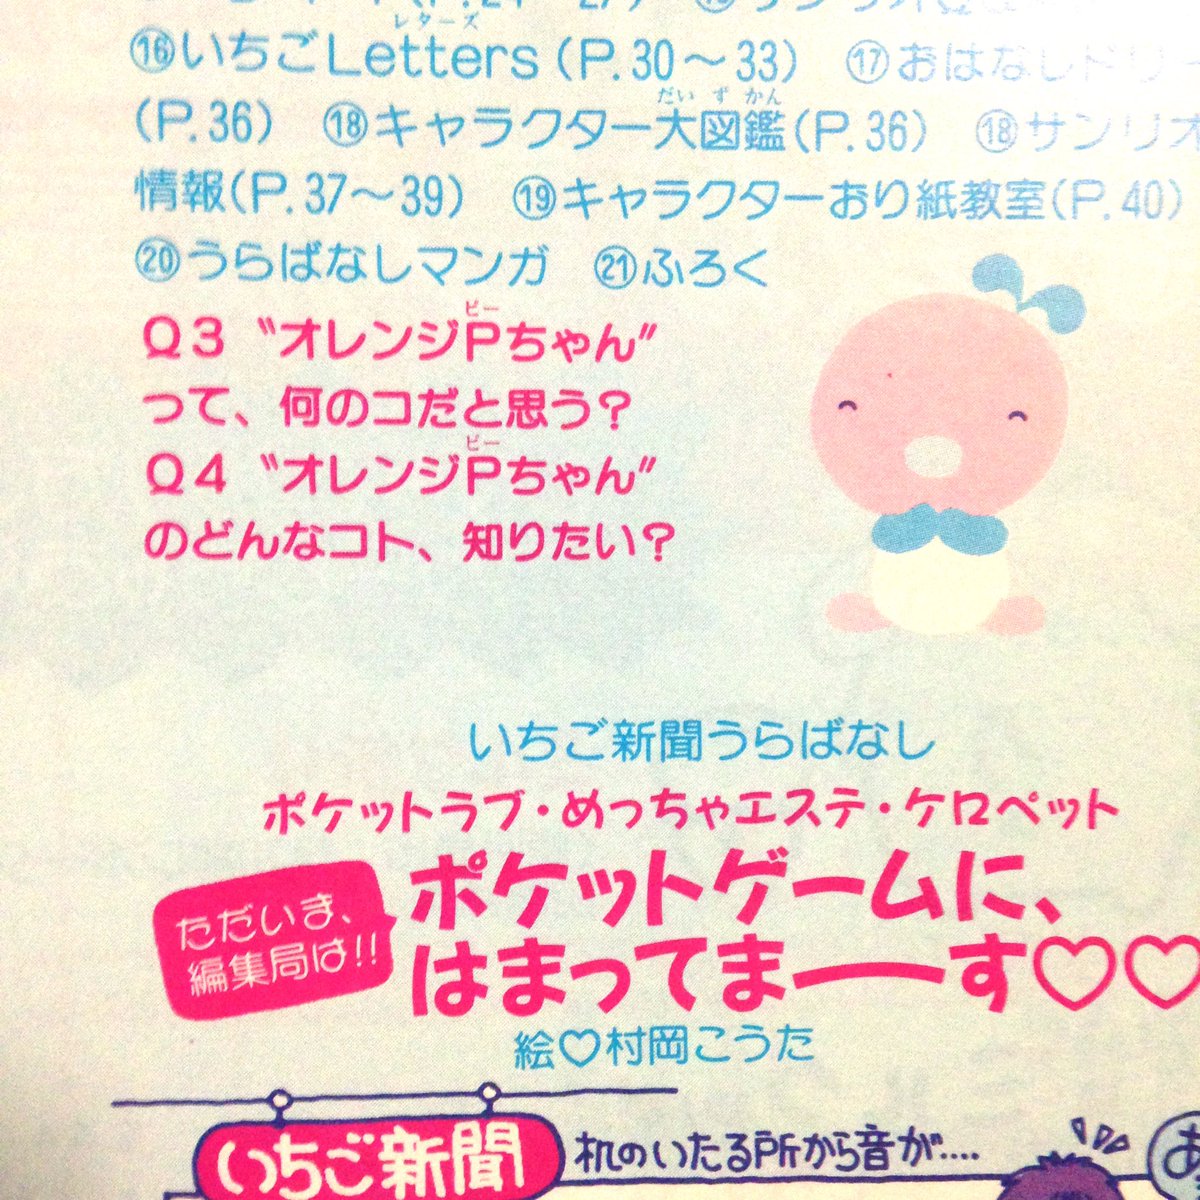 ⑯いちごLetters(P.30～33) ⑰おはなしドリー
レターズ
(P.36) ⑱キャラクター大図鑑(P.36) ⑱サンリオ
だいずかん
情報(P.37～39) ⑲キャラクターおり紙教室(P.40)
⑳うらばなしマンガ ㉑ふろく
Q3 〝オレンジPちゃん〟
ピー
って、何のコだと思う?
Q4 〝オレンジPちゃん〟
ピー
のどんなコト、知りたい?
いちご新聞うらばなし
ポケットラブ・めっちゃエステ・ケロペット
ただいま、
編集局は!!
ポケットゲームに、
はまってまーーす♡♡
絵♡村岡こうた
いちご新聞
机のいたる所から音が....